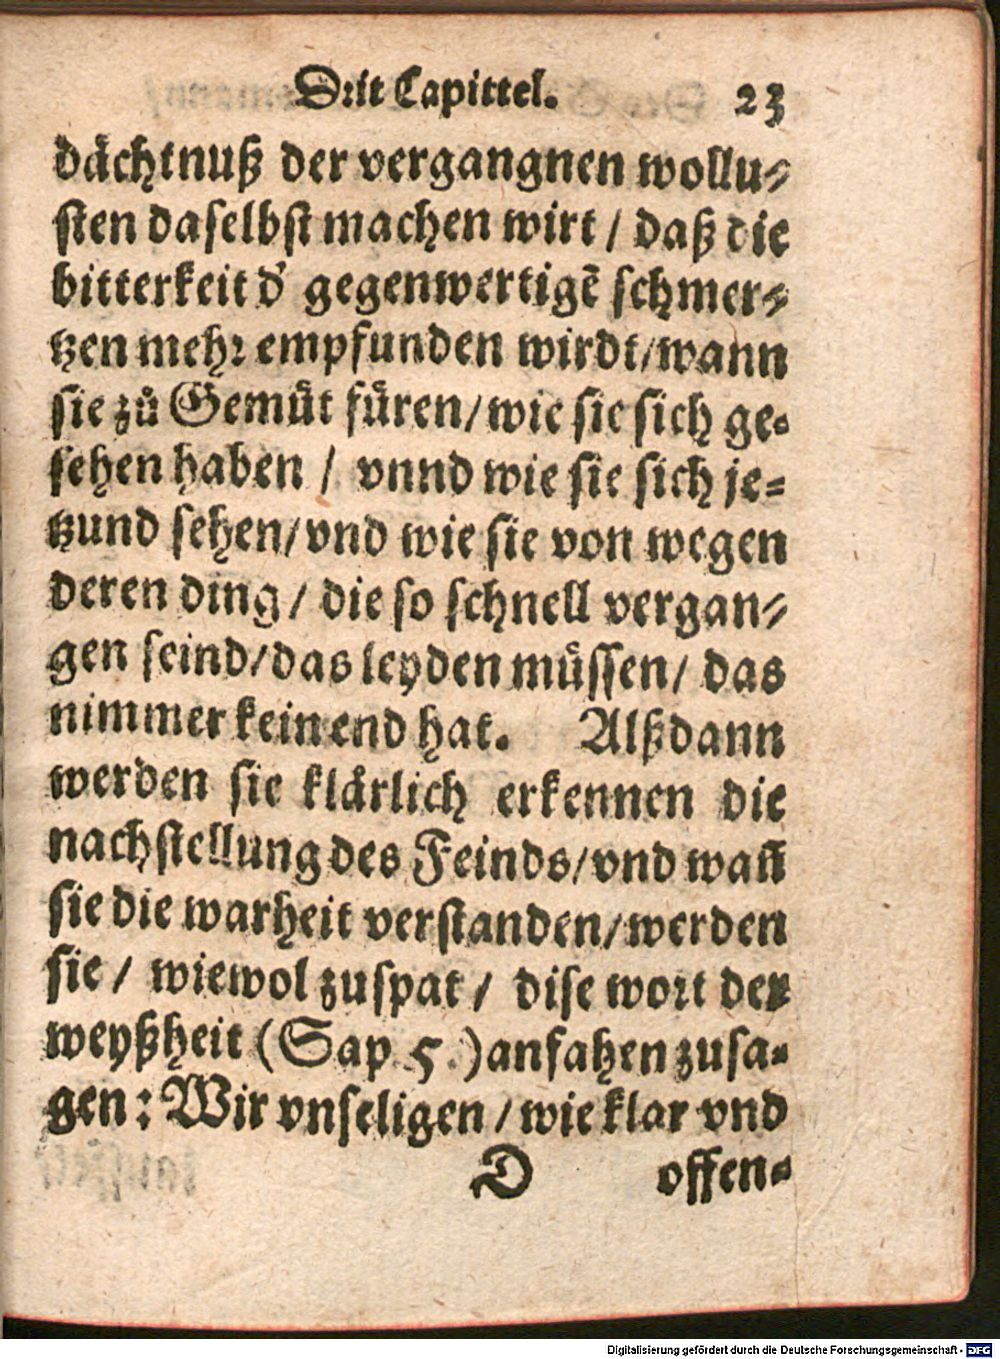 Drit Capittel. 23
dächtnuß der vergangnen wollu-
sten daselbst machen wirt / daß die
bitterkeit d' gegenwertigē schmer-
tzen mehr empfunden wirdt/wann
sie zů Gemüt füren/wie sie sich ge-
sehen haben / vnnd wie sie sich je-
tzund sehen/vnd wie sie von wegen
deren ding / die so schnell vergan-
gen seind/das leyden müssen/ das
nimmer kein end hat. Alßdann
werden sie klärlich erkennen die
nachstellung des Feinds/vnd wañ
sie die warheit verstanden/werden
sie / wiewol zuspat / dise wort der
weyßheit (Sap. 5.) anfahen zusa-
gen: Wir vnseligen / wie klar vnd
D offen-
Digitalisierung gefördert durch die Deutsche Forschungsgemeinschaft - DFG